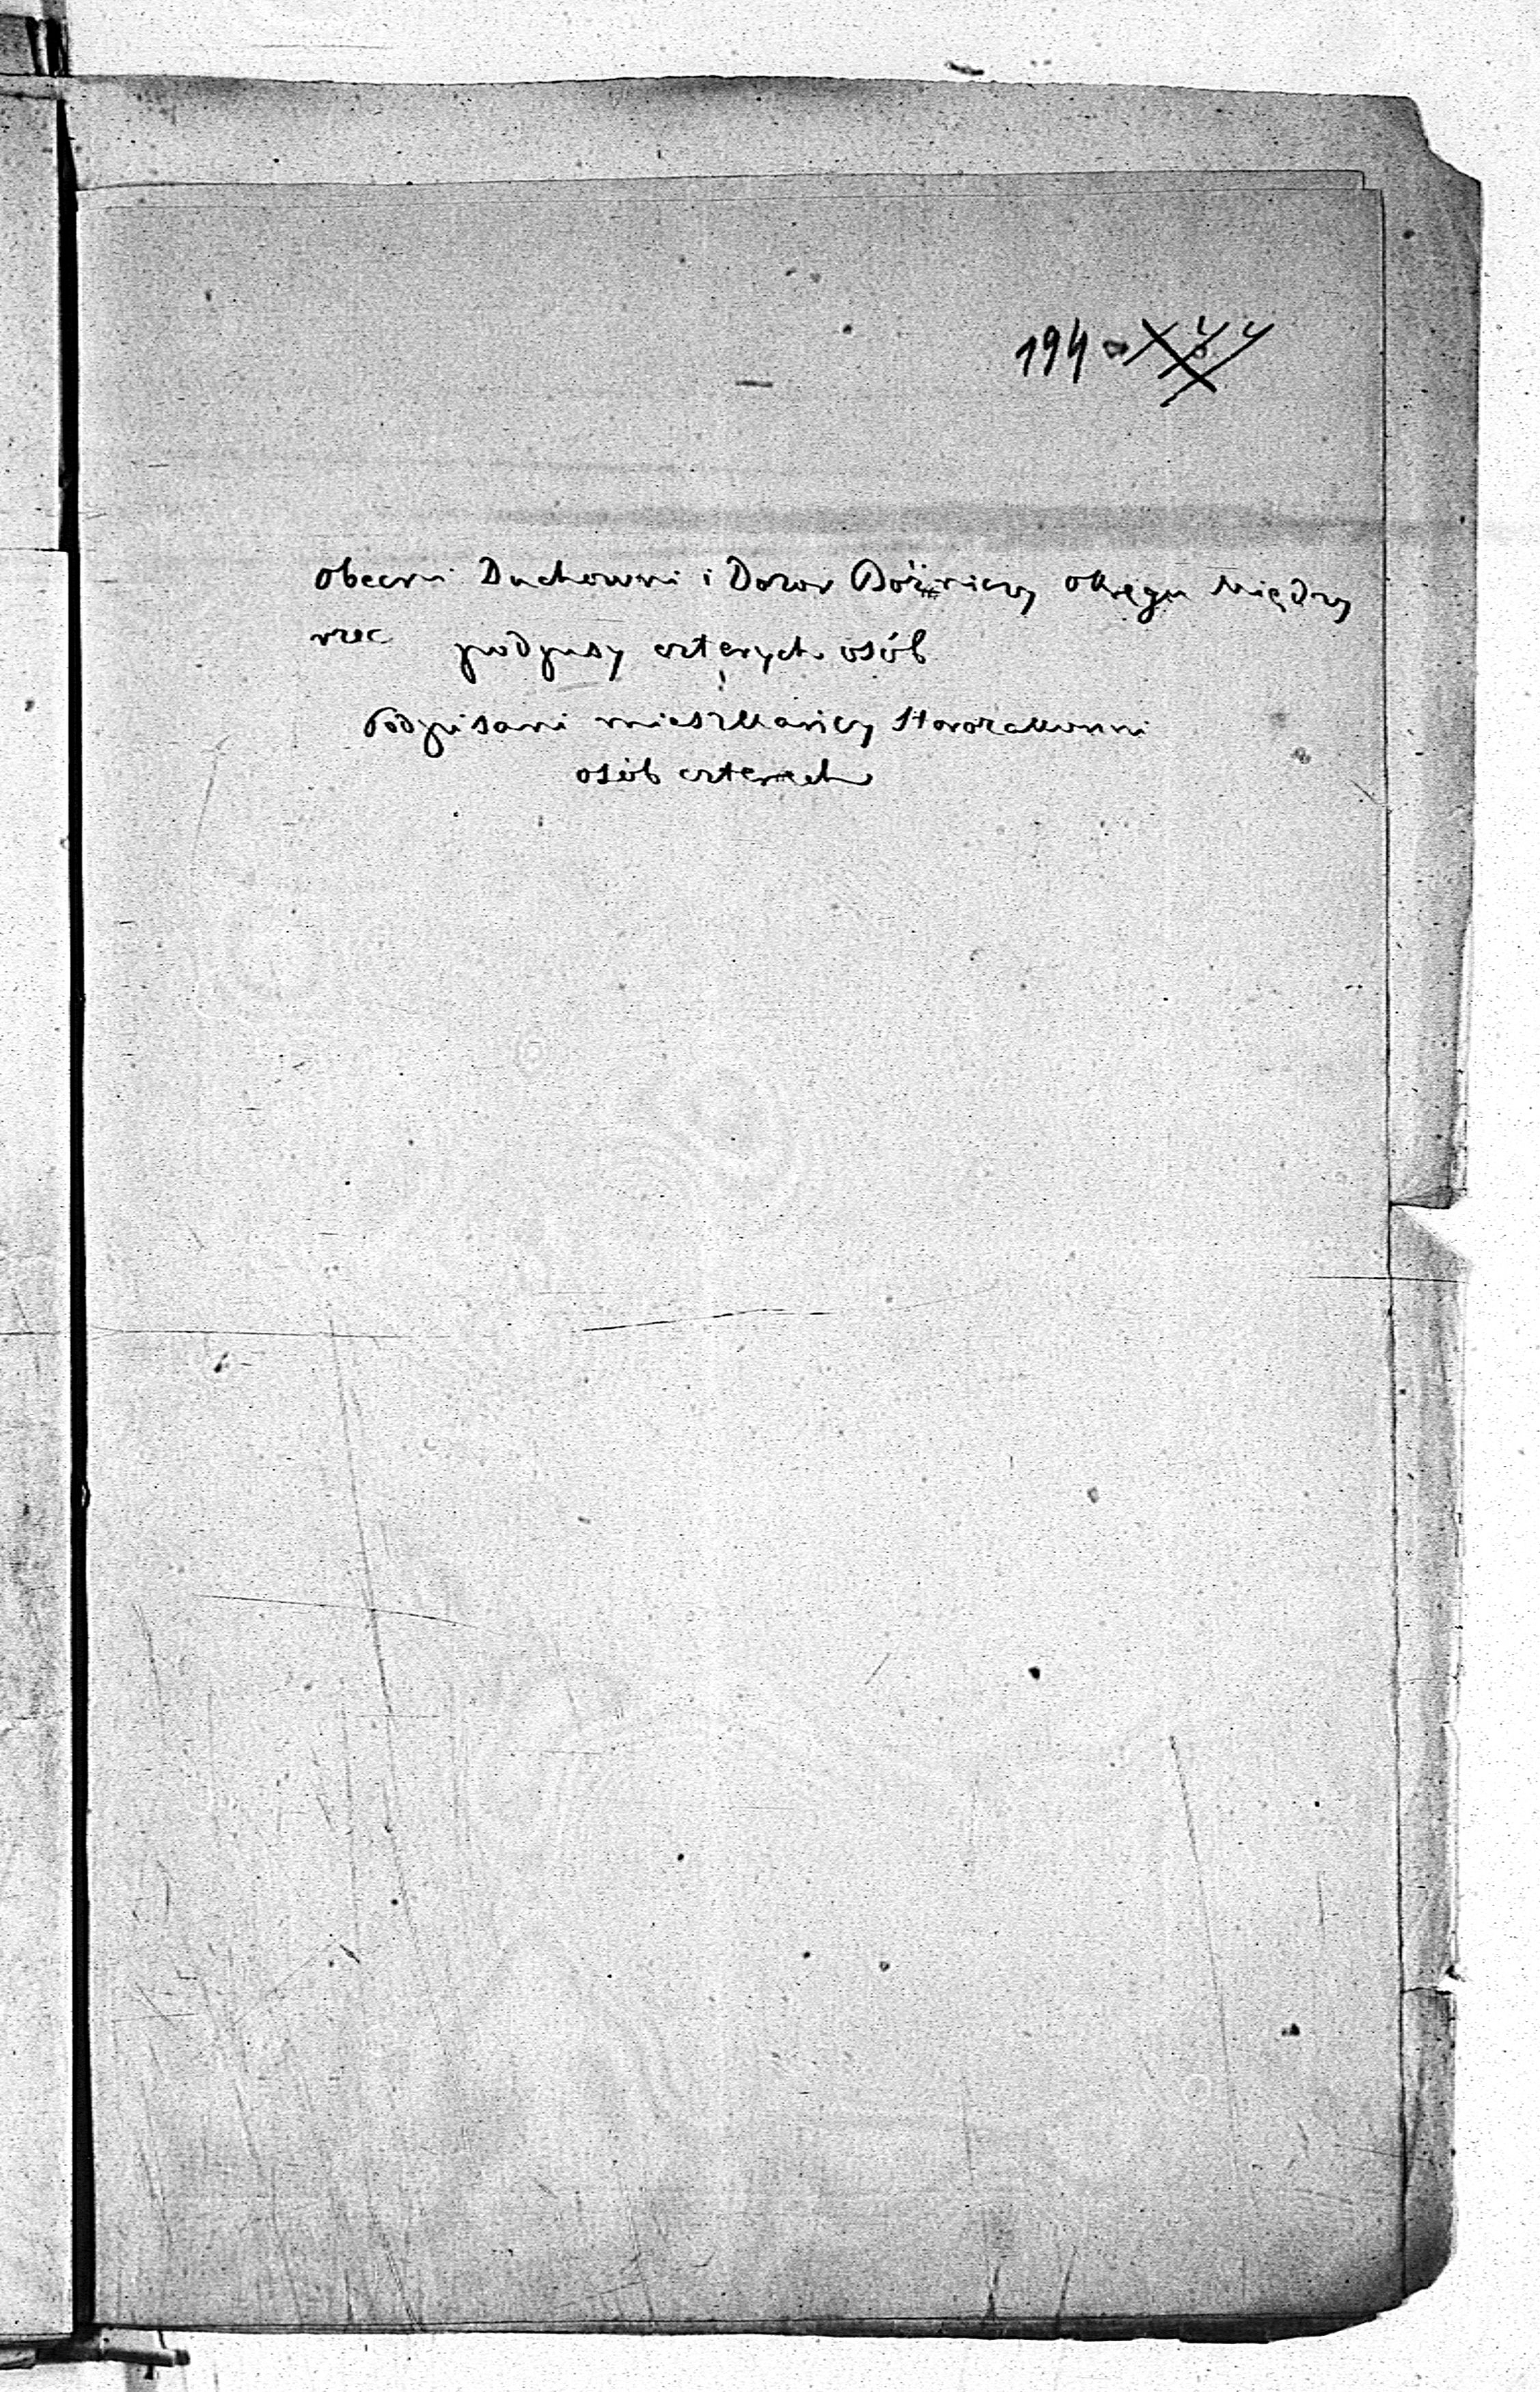 194
Obecni Duchowni i Dozor Bóżniczy Okręgu Między
rzec podpisy czterych osób
Podpisani mieszkańcy Starozakonni
osób czterech